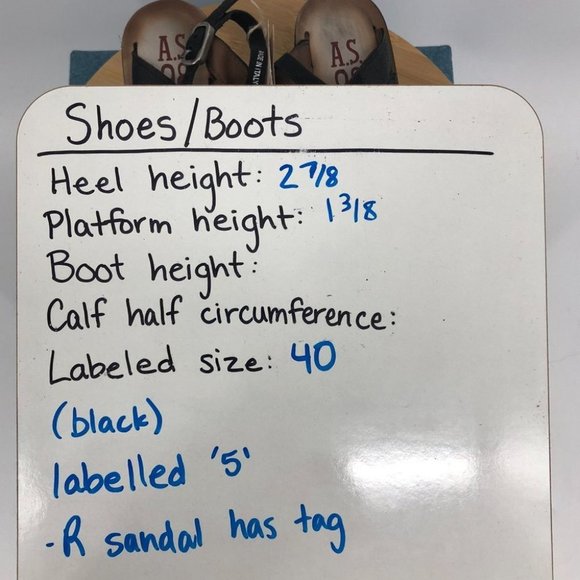 A.S.
98
MADE IN ITALY
A.S.
98
Shoes/Boots
Heel height: 2 7/8
Platform height: 1 3/8
Boot height:
Calf half circumference:
Labeled size: 40
(black)
labelled '5'
-R sandal has tag